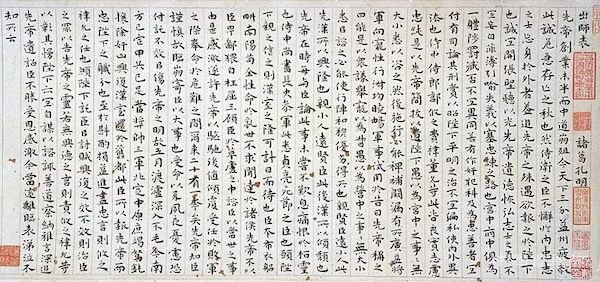 出師表 諸葛孔明
先帝創業未半而中道崩殂今天下三分益州疲敝
此誠危急存亡之秋也然侍衛之臣不懈於內忠志
之士忘身於外者蓋追先帝之殊遇欲報之於陛下
也誠宜開張聖聽以光先帝遺德恢弘志士之氣不
宜妄自菲薄引喻失義以塞忠諫之路也宮中府中俱為
一體陟罰臧否不宜異同若有作奸犯科及為忠善者宜
付有司論其刑賞以昭陛下平明之治不宜偏私使內外異
法也侍中侍郎郭攸之費禕董允等此皆良實志慮
忠純是以先帝簡拔以遺陛下愚以為宮中之事事無
大小悉以咨之然後施行必能裨補闕漏有所廣益將
軍向寵性行淑均曉暢軍事試用於昔日先帝稱之
曰能是以眾議舉寵以為督愚以為營中之事事無大小
悉以咨之必能使行陣和穆優劣得所也親賢臣遠小人此
先漢所以興隆也親小人遠賢臣此後漢所以傾頹也
先帝在時每與臣論此事未嘗不歎息痛恨於桓靈
也侍中尚書長史參軍此悉貞亮死節之臣也願陛
下親之信之則漢室之隆可計日而待也臣本布衣躬
耕南陽苟全性命於亂世不求聞達於諸侯先帝不以
臣卑鄙猥自枉屈三顧臣於草廬之中諮臣以當世之事
由是感激遂許先帝以馳驅後值傾覆受任於敗軍
之際奉命於危難之間爾來二十有一年矣先帝知臣
謹慎故臨崩寄臣以大事也受命以來夙夜憂慮恐
付託不效以傷先帝之明故五月渡瀘深入不毛今南
方已定甲兵已足當獎帥三軍北定中原庶竭駑鈍
攘除奸凶興復漢室還於舊都此臣所以報先帝而
忠陛下之職分也至於斟酌損益進盡忠言則攸之
禕允之任也願陛下託臣以討賊興復之效不效則治臣
之罪以告先帝之靈若無興德之言則責攸之禕允等
咎以彰其慢陛下亦宜自謀以諮諏善道察納雅言深追
先帝遺詔臣不勝受恩感激今當遠離臨表涕泣不
知所云